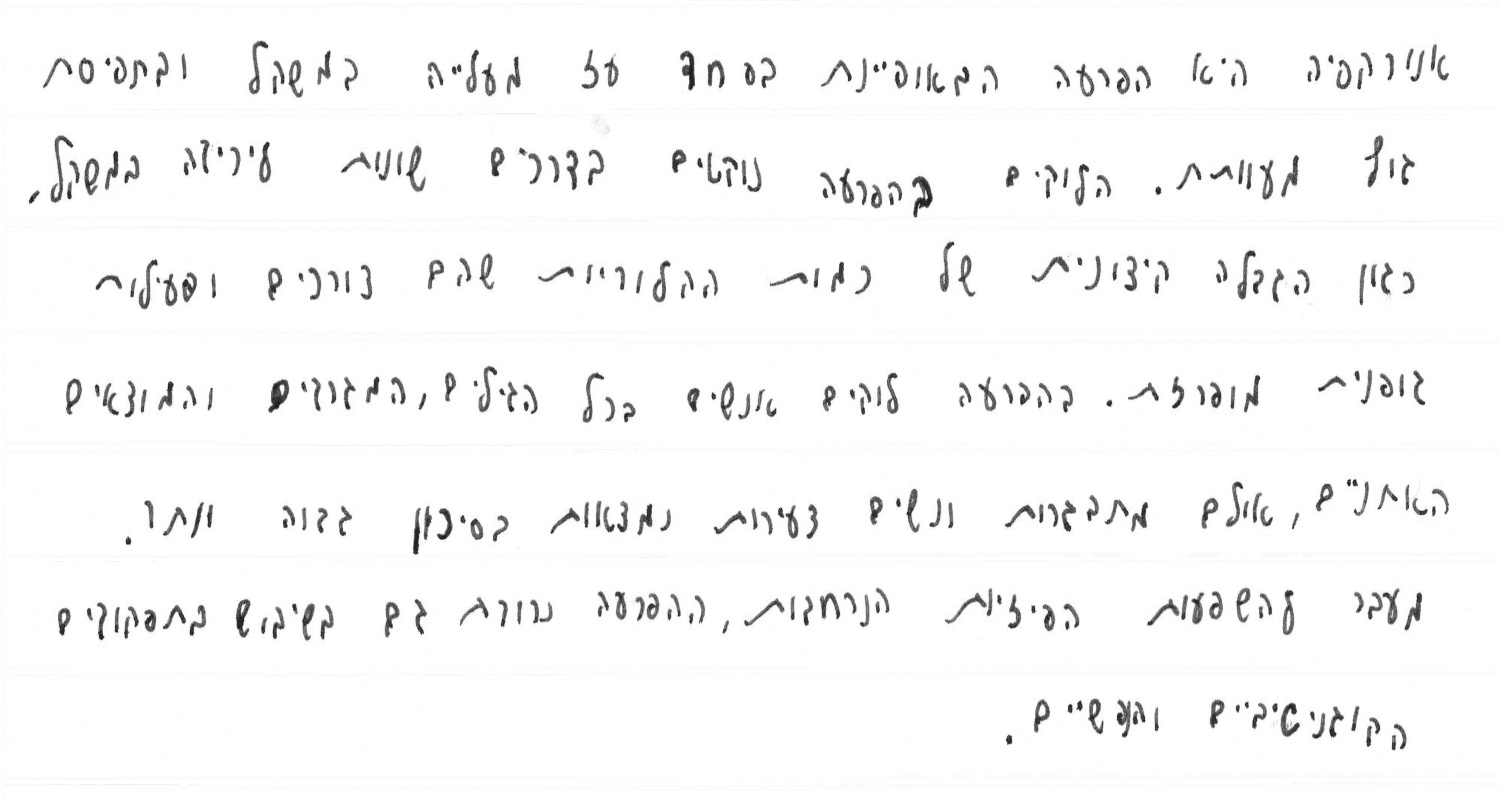 אנורקסיה היא הפרעה המאופיינת בפחד עז מעלייה במשקל ובתפיסת
גוף מעוותת. הלוקים בהפרעה נוקטים בדרכים שונות לירידה במשקל,
כגון הגבלה קיצונית של כמות הקלוריות שהם צורכים ופעילות
גופנית מופרזת. בהפרעה לוקים אנשים בכל הגילים, המגדרים והמוצאים
האתניים, אולם מתבגרות ונשים צעירות נמצאות בסיכון גבוה יותר.
מעבר להשפעות הפיזיות הנרחבות, ההפרעה כרוכה גם בשיבוש בתפקודים
הקוגניטיביים והנפשיים.